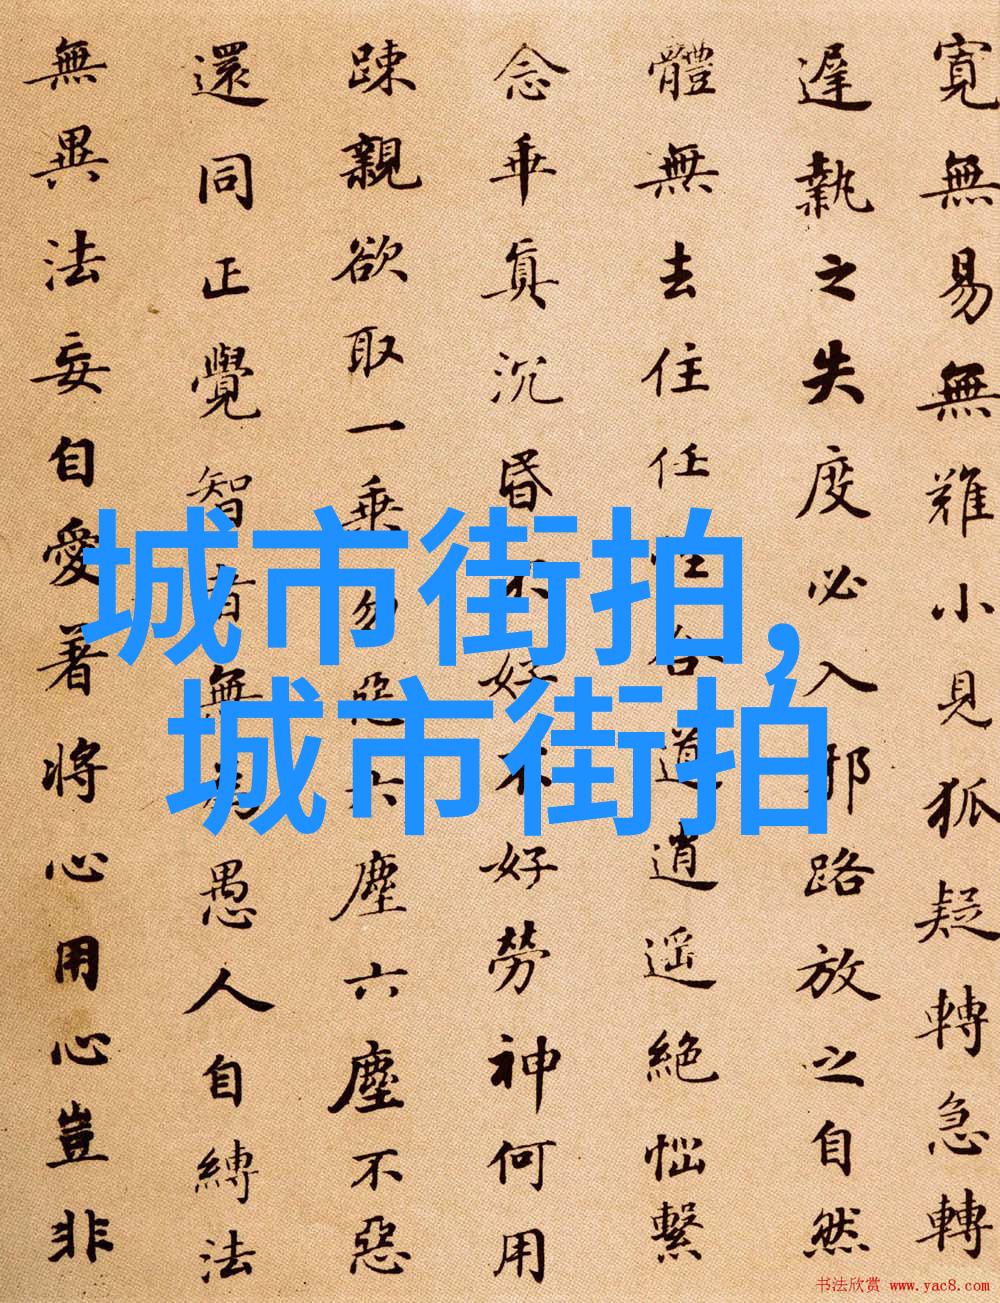 寬無易無難小見狐疑轉急轉
遲執之失度必入邪路放之自然
體無去住任性合道逍遙絕惱繫
念乖真沉昏不好不好勞神何用
踈親欲取一乘勿惡六塵六塵不惡
還同正覺智者無為愚人自縛法
無異法妄自愛著將心用心豈非
城市街拍,
城市街拍
书法欣赏 www.yac8.com